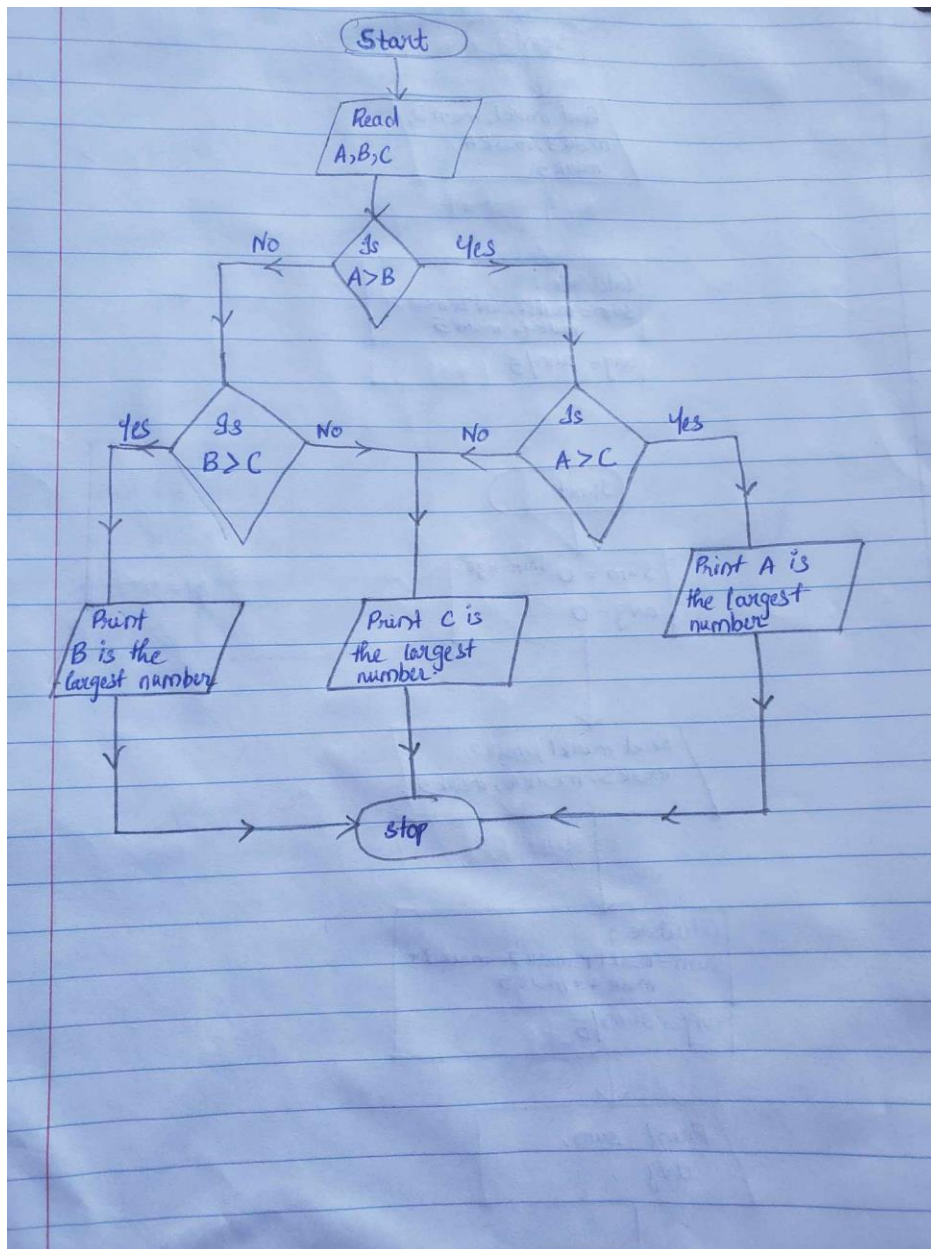 Start
Read
A,B,C
No
Is
A>B
Yes
Yes
Is
B>C
No
No
Is
A>C
Yes
Print A is
the largest
number
Print
B is the
largest number
Print C is
the largest
number.
Stop